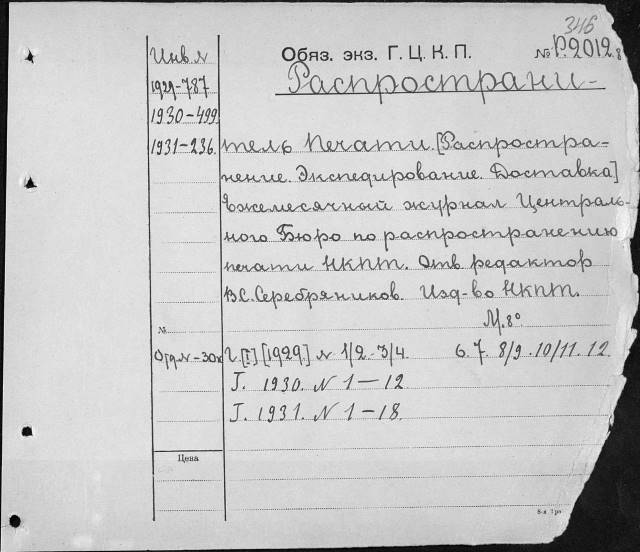 346
Инв. №
Обяз. экз. Г. Ц. К. П.
№ Р.2012.8
1929-787
Распространи-
1930-499
1931-236.
тель Печати. [Распростра-
нение. Экспедирование. Доставка]
Ежемесячный журнал Централь-
ного Бюро по распространению
печати НКПТ. Отв. редактор
В.С. Серебряников. Изд-во НКПТ.
М. 8°
№
Г. [I] [1929.] № 1/2.-3/4. 6. 7. 8/9. 10/11. 12.
Г. 1930. № 1—12
Г. 1931. № 1—18.
Цена